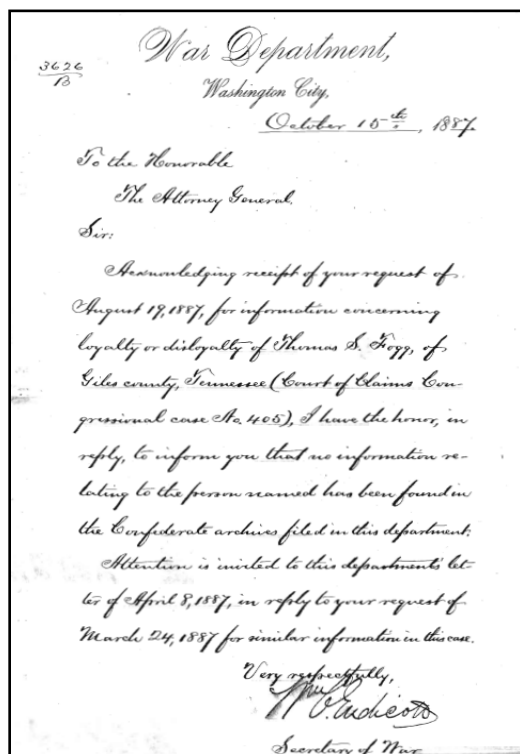 War Department,
3626
B
Washington City,
October 15th, 1887.
To the Honorable
The Attorney General.
Sir:
Acknowledging receipt of your request of
August 19, 1887, for information concerning
loyalty or disloyalty of Thomas S. Fogg, of
Giles county, Tennessee (Court of Claims Con-
gressional case No. 405), I have the honor, in
reply, to inform you that no information re-
lating to the person named has been found in
the Confederate archives filed in this department.
Attention is invited to this department's let-
ter of April 8, 1887, in reply to your request of
March 24, 1887 for similar information in this case.
Very respectfully,
Wm C. Endicott
Secretary of War